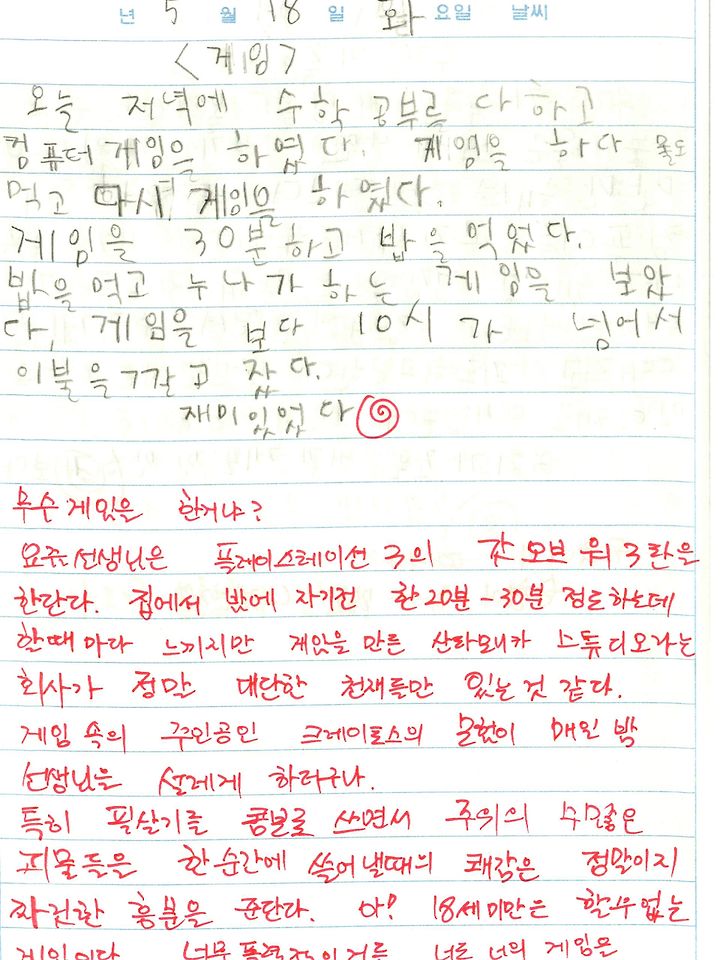 년 5 월 18 일 화 요일 날씨
<게임>
오늘 저녁에 수학 공부를 다 하고
컴퓨터 게임을 하였다. 게임을 하다 물도
먹고 다시 게임을 하였다.
게임을 30분하고 밥을 먹었다.
밥을 먹고 누나가 하는 게임을 보았
다. 게임을 보다 10시 가 넘어서
이불을 깔고 잤다.
재미있었다
무슨 게임을 한거냐?
요즘 선생님은 플레이스테이션 3의 갓 오브 워 3 탄을
한단다. 집에서 밤에 자기전 한 20분 - 30분 정도 하는데
할때 마다 느끼지만 게임을 만든 산타모니카 스튜디오라는
회사가 정말 대단한 천재들만 있는 것 같다.
게임 속의 주인공인 크레이토스의 모험이 매일 밤
선생님을 설레게 하더구나.
특히 필살기를 콤보로 쓰면서 주위의 수많은
괴물들을 한순간에 쓸어 낼때의 쾌감은 정말이지
짜릿한 흥분을 준단다. 아! 18세 미만은 할수 없는
게임이다 너무 폭력적인거를 너는 너의 게임은